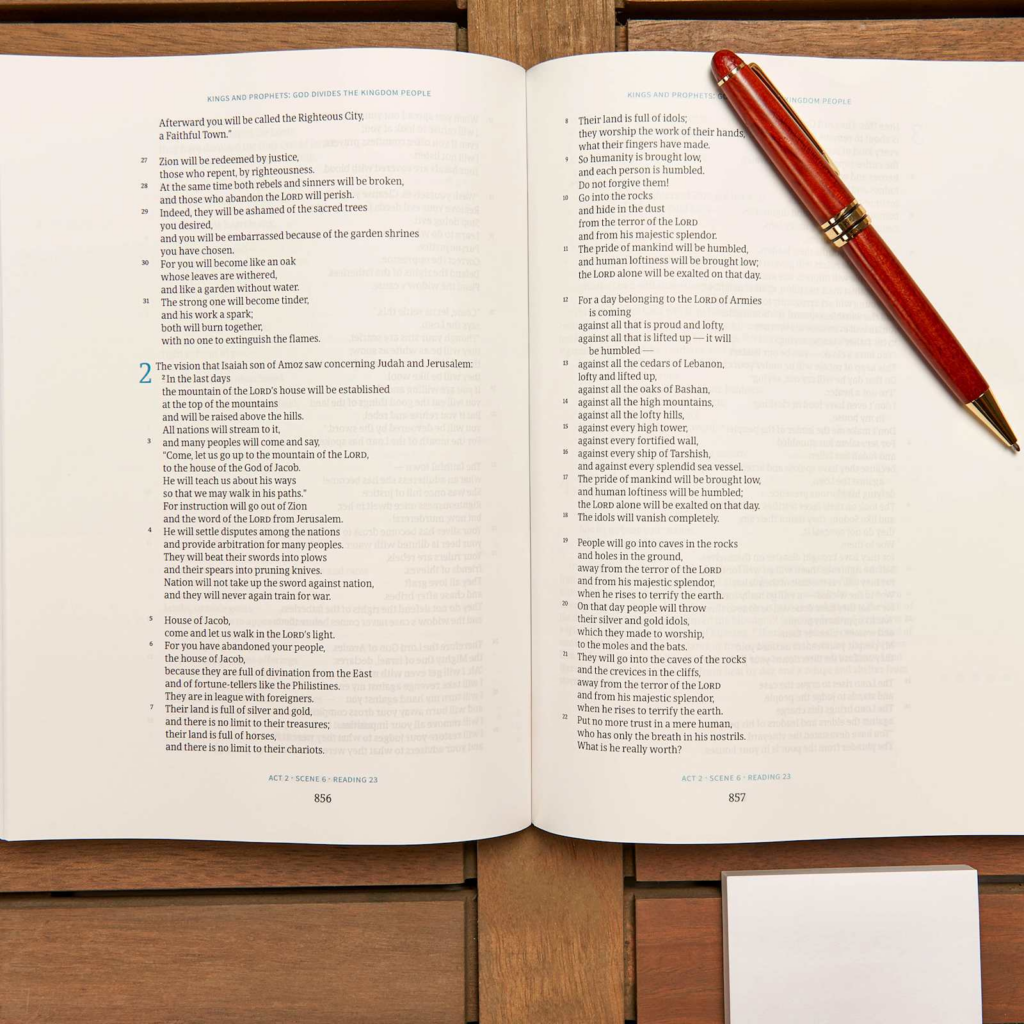 KINGS AND PROPHETS: GOD DIVIDES THE KINGDOM PEOPLE
Afterward you will be called the Righteous City,
a Faithful Town."
27 Zion will be redeemed by justice,
those who repent, by righteousness.
28 At the same time both rebels and sinners will be broken,
and those who abandon the LORD will perish.
29 Indeed, they will be ashamed of the sacred trees
you desired,
and you will be embarrassed because of the garden shrines
you have chosen.
30 For you will become like an oak
whose leaves are withered,
and like a garden without water.
31 The strong one will become tinder,
and his work a spark;
both will burn together,
with no one to extinguish the flames.
2 The vision that Isaiah son of Amoz saw concerning Judah and Jerusalem:
2 In the last days
the mountain of the LORD's house will be established
at the top of the mountains
and will be raised above the hills.
All nations will stream to it,
3 and many peoples will come and say,
"Come, let us go up to the mountain of the LORD,
to the house of the God of Jacob.
He will teach us about his ways
so that we may walk in his paths."
For instruction will go out of Zion
and the word of the LORD from Jerusalem.
4 He will settle disputes among the nations
and provide arbitration for many peoples.
They will beat their swords into plows
and their spears into pruning knives.
Nation will not take up the sword against nation,
and they will never again train for war.
5 House of Jacob,
come and let us walk in the LORD's light.
6 For you have abandoned your people,
the house of Jacob,
because they are full of divination from the East
and of fortune-tellers like the Philistines.
They are in league with foreigners.
7 Their land is full of silver and gold,
and there is no limit to their treasures;
their land is full of horses,
and there is no limit to their chariots.
ACT 2 · SCENE 6 · READING 23
856
KINGS AND PROPHETS: KINGDOM PEOPLE
8 Their land is full of idols;
they worship the work of their hands,
what their fingers have made.
9 So humanity is brought low,
and each person is humbled.
Do not forgive them!
10 Go into the rocks
and hide in the dust
from the terror of the LORD
and from his majestic splendor.
11 The pride of mankind will be humbled,
and human loftiness will be brought low;
the LORD alone will be exalted on that day.
12 For a day belonging to the LORD of Armies
is coming
against all that is proud and lofty,
against all that is lifted up — it will
be humbled —
13 against all the cedars of Lebanon,
lofty and lifted up,
against all the oaks of Bashan,
14 against all the high mountains,
against all the lofty hills,
15 against every high tower,
against every fortified wall,
16 against every ship of Tarshish,
and against every splendid sea vessel.
17 The pride of mankind will be brought low,
and human loftiness will be humbled;
the LORD alone will be exalted on that day.
18 The idols will vanish completely.
19 People will go into caves in the rocks
and holes in the ground,
away from the terror of the LORD
and from his majestic splendor,
when he rises to terrify the earth.
20 On that day people will throw
their silver and gold idols,
which they made to worship,
to the moles and the bats.
21 They will go into the caves of the rocks
and the crevices in the cliffs,
away from the terror of the LORD
and from his majestic splendor,
when he rises to terrify the earth.
22 Put no more trust in a mere human,
who has only the breath in his nostrils.
What is he really worth?
ACT 2 · SCENE 6 · READING 23
857